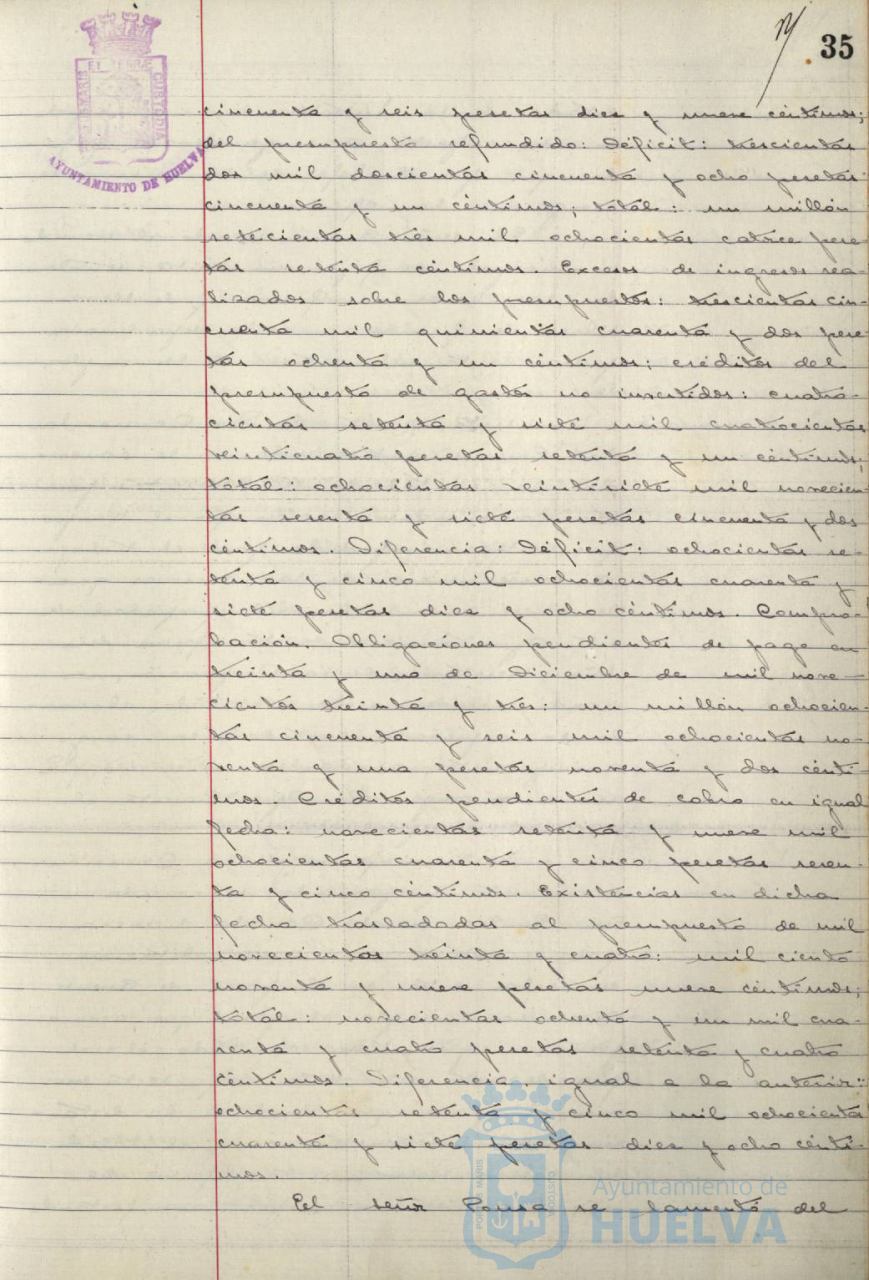 35
PORTUS MARIS ET TERRAE CUSTODIA
AYUNTAMIENTO DE HUELVA
cincuenta y seis pesetas diez y nueve céntimos;
del presupuesto refundido: Déficit: trescientas
dos mil doscientas cincuenta y ocho pesetas
cincuenta y un céntimos; total: un millón
setecientas tres mil ochocientas catorce pese-
tas setenta céntimos. Excesos de ingresos rea-
lizados sobre los presupuestos: trescientas cin-
cuenta mil quinientas cuarenta y dos pese-
tas ochenta y un céntimos; créditos del
presupuesto de gastos no invertidos: cuatro-
cientas setenta y siete mil cuatrocientas
veinticuatro pesetas setenta y un céntimos;
total: ochocientas veintisiete mil novecien-
tas sesenta y siete pesetas cincuenta y dos
céntimos. Diferencia: Déficit: ochocientas se-
tenta y cinco mil ochocientas cuarenta y
siete pesetas diez y ocho céntimos. Compro-
bación. Obligaciones pendientes de pago en
treinta y uno de Diciembre de mil nove-
cientos treinta y tres: un millón ochocien-
tas cincuenta y seis mil ochocientas no-
venta y una pesetas noventa y dos cénti-
mos. Créditos pendientes de cobro en igual
fecha: novecientas setenta y nueve mil
ochocientas cuarenta y cinco pesetas sesen-
ta y cinco céntimos. Existencias en dicha
fecha trasladadas al presupuesto de mil
novecientos treinta y cuatro: mil ciento
noventa y nueve pesetas nueve céntimos;
total: novecientas ochenta y un mil cua-
renta y cuatro pesetas setenta y cuatro
céntimos. Diferencia, igual a la anterior:
ochocientas setenta y cinco mil ochocientas
cuarenta y siete pesetas diez y ocho cénti-
mos.
El señor Ponsa se lamentó del
Ayuntamiento de
HUELVA